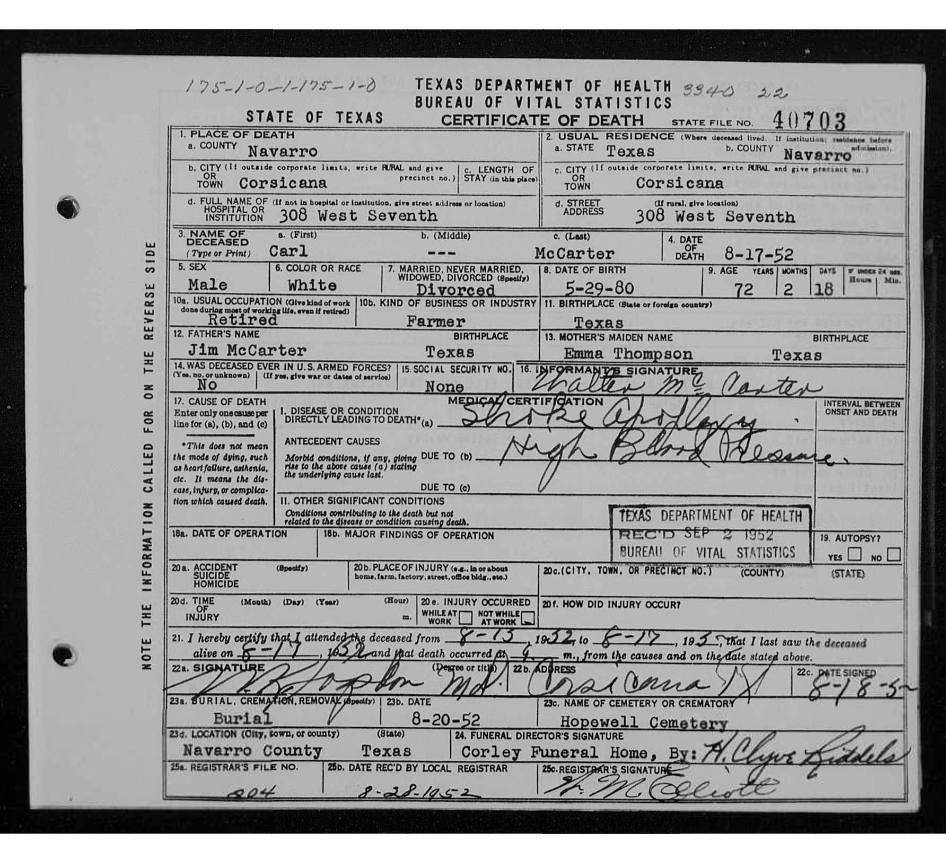 175-1-0-1-175-1-0 TEXAS DEPARTMENT OF HEALTH 3340 22
BUREAU OF VITAL STATISTICS
STATE OF TEXAS CERTIFICATE OF DEATH STATE FILE NO. 40703
1. PLACE OF DEATH 2. USUAL RESIDENCE (Where deceased lived. If institution: residence before admission).
a. COUNTY Navarro a. STATE Texas b. COUNTY Navarro
b. CITY (If outside corporate limits, write RURAL and give precinct no.) c. LENGTH OF STAY (in this place) c. CITY (If outside corporate limits, write RURAL and give precinct no.)
OR TOWN Corsicana OR TOWN Corsicana
d. FULL NAME OF (If not in hospital or institution, give street address or location) d. STREET ADDRESS (If rural, give location)
HOSPITAL OR INSTITUTION 308 West Seventh 308 West Seventh
3. NAME OF DECEASED a. (First) b. (Middle) c. (Last) 4. DATE OF DEATH
(Type or Print) Carl --- McCarter 8-17-52
5. SEX 6. COLOR OR RACE 7. MARRIED, NEVER MARRIED, WIDOWED, DIVORCED (Specify) 8. DATE OF BIRTH 9. AGE YEARS MONTHS DAYS IF UNDER 24 HRS. Hours Min.
Male White Divorced 5-29-80 72 2 18
10a. USUAL OCCUPATION (Give kind of work done during most of working life, even if retired) 10b. KIND OF BUSINESS OR INDUSTRY 11. BIRTHPLACE (State or foreign country)
Retired Farmer Texas
12. FATHER'S NAME BIRTHPLACE 13. MOTHER'S MAIDEN NAME BIRTHPLACE
Jim McCarter Texas Emma Thompson Texas
14. WAS DECEASED EVER IN U.S. ARMED FORCES? 15. SOCIAL SECURITY NO. 16. INFORMANT'S SIGNATURE
(Yes, no, or unknown) (If yes, give war or dates of service)
No None Walter McCarter
17. CAUSE OF DEATH MEDICAL CERTIFICATION INTERVAL BETWEEN ONSET AND DEATH
Enter only one cause per line for (a), (b), and (c)
I. DISEASE OR CONDITION DIRECTLY LEADING TO DEATH* (a) Stroke Apoplexy
*This does not mean the mode of dying, such as heart failure, asthenia, etc. It means the disease, injury, or complication which caused death.
ANTECEDENT CAUSES
Morbid conditions, if any, giving rise to the above cause (a) stating the underlying cause last.
DUE TO (b) High Blood Pressure.
DUE TO (c)
II. OTHER SIGNIFICANT CONDITIONS
Conditions contributing to the death but not related to the disease or condition causing death.
TEXAS DEPARTMENT OF HEALTH
REC'D SEP 2 1952
BUREAU OF VITAL STATISTICS
18a. DATE OF OPERATION 18b. MAJOR FINDINGS OF OPERATION 19. AUTOPSY?
YES NO
20a. ACCIDENT SUICIDE HOMICIDE (Specify) 20b. PLACE OF INJURY (e.g., in or about home, farm, factory, street, office bldg., etc.) 20c. (CITY, TOWN, OR PRECINCT NO.) (COUNTY) (STATE)
20d. TIME OF INJURY (Month) (Day) (Year) (Hour) m. 20e. INJURY OCCURRED WHILE AT WORK NOT WHILE AT WORK 20f. HOW DID INJURY OCCUR?
21. I hereby certify that I attended the deceased from 8-15, 1952 to 8-17, 195 , that I last saw the deceased
alive on 8-17, 1952 and that death occurred at m., from the causes and on the date stated above.
22a. SIGNATURE (Degree or title) 22b. ADDRESS 22c. DATE SIGNED
MD Corsicana 8-18-5
23a. BURIAL, CREMATION, REMOVAL (Specify) 23b. DATE 23c. NAME OF CEMETERY OR CREMATORY
Burial 8-20-52 Hopewell Cemetery
23d. LOCATION (City, town, or county) (State) 24. FUNERAL DIRECTOR'S SIGNATURE
Navarro County Texas Corley Funeral Home, By: H. Clyve Riddels
25a. REGISTRAR'S FILE NO. 25b. DATE REC'D BY LOCAL REGISTRAR 25c. REGISTRAR'S SIGNATURE
204 8-28-1952 W. M. Elliott
NOTE THE INFORMATION CALLED FOR ON THE REVERSE SIDE